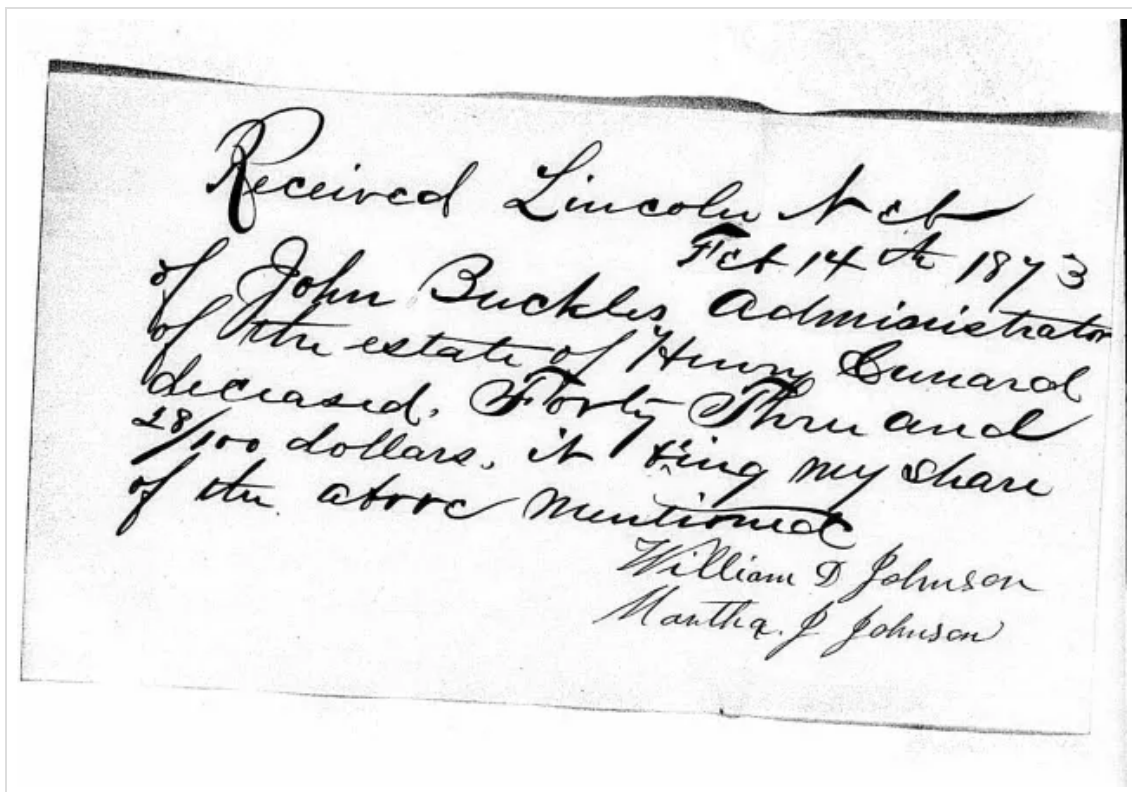 Received Lincoln Neb
Feb 14th 1873
of John Buckles Administrator
of the estate of Henry Cunard
deceased. Forty Three and
28/100 dollars. it being my share
of the above mentioned
William D Johnson
Martha. J Johnson